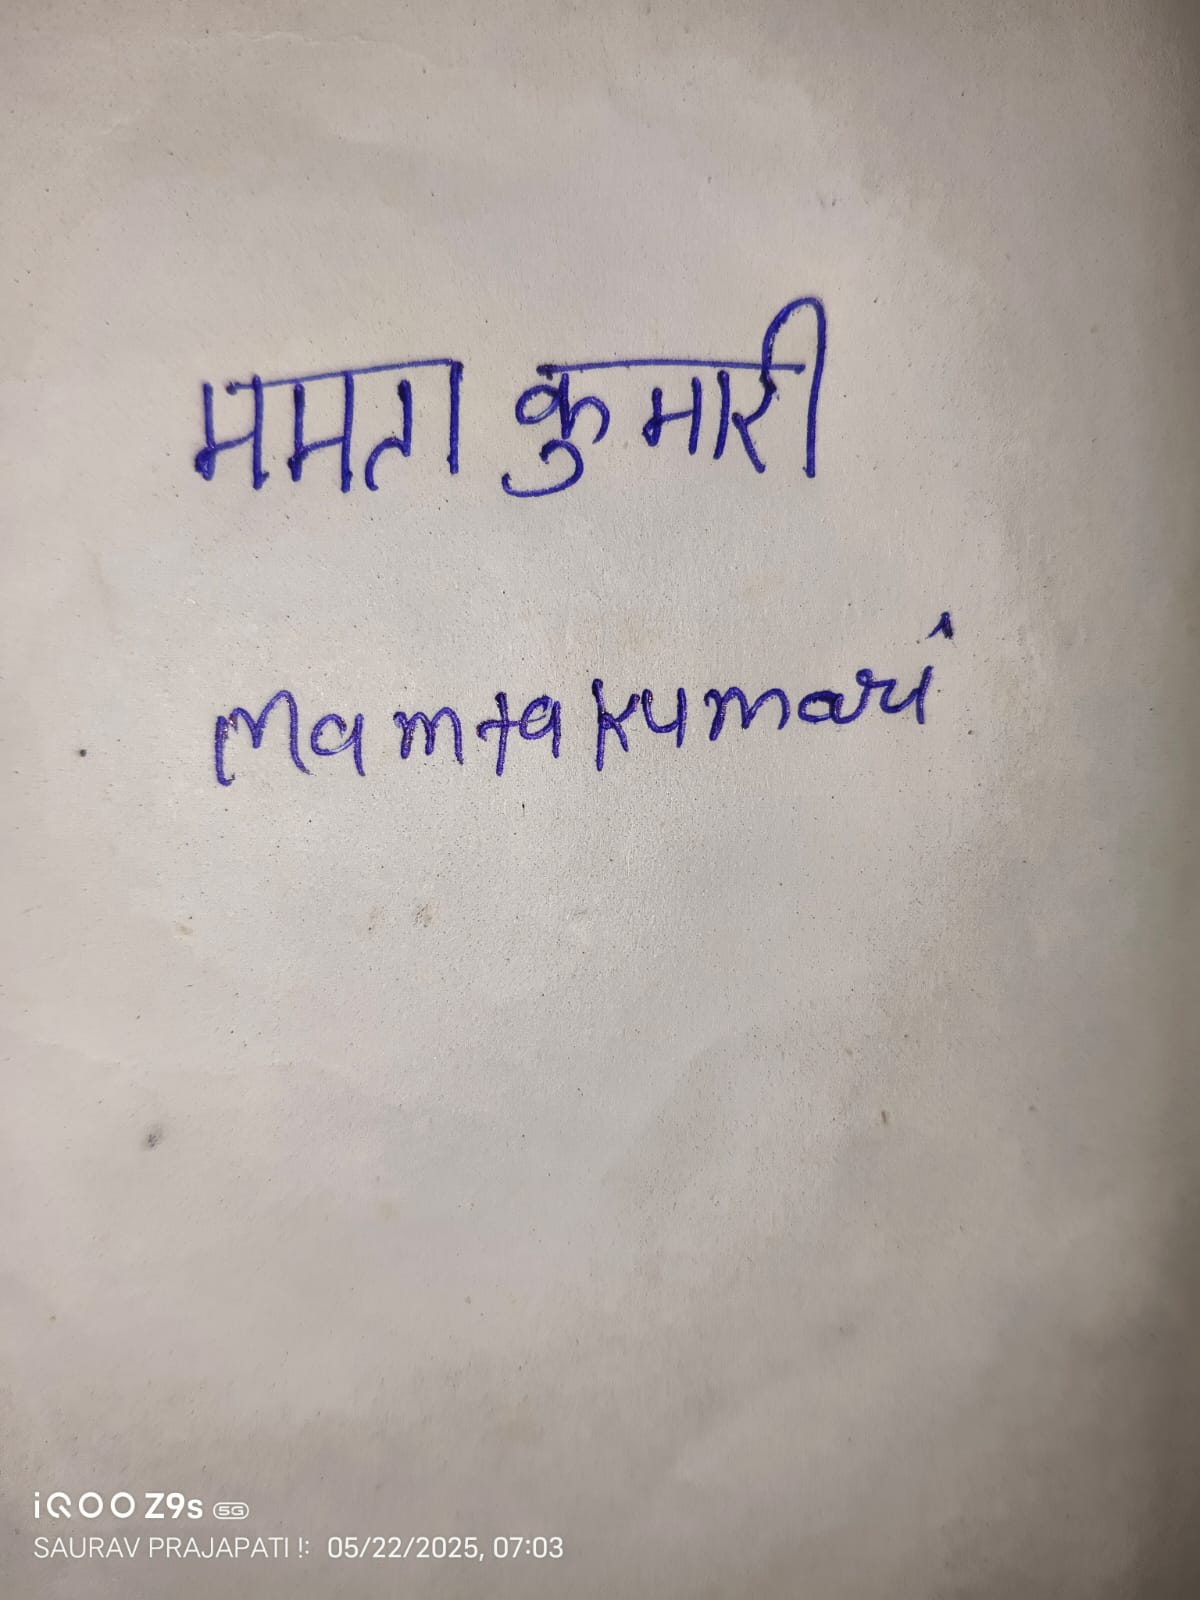 ममता कुमारी
Mamta kumari
iQOO Z9s 5G
SAURAV PRAJAPATI !: 05/22/2025, 07:03